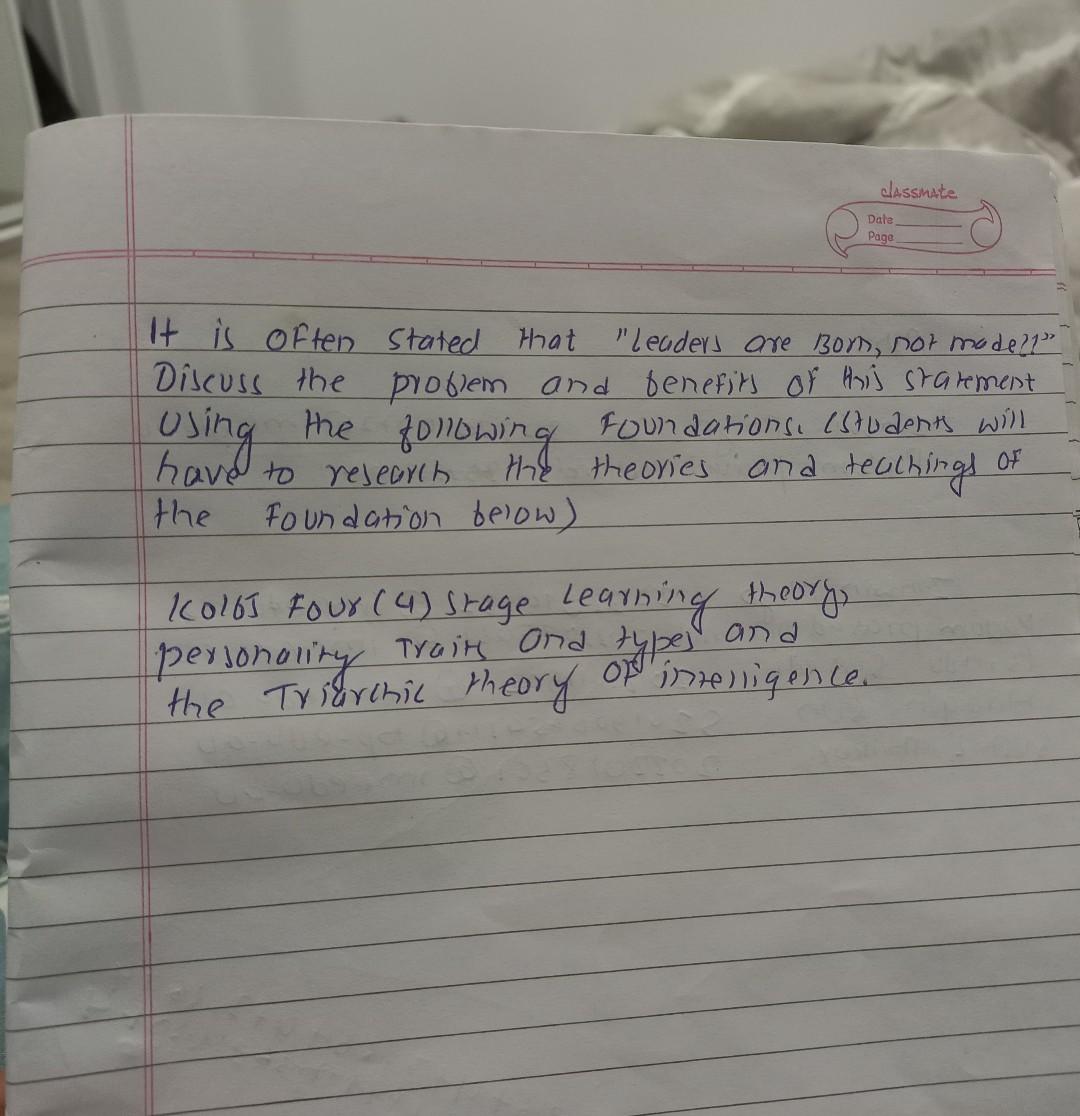 classmate
Date
Page
It is often stated that "leaders are Born, not made??"
Discuss the problem and benefits of this statement
Using the following Foundations. (Students will
have to research the theories and teachings of
the Foundation below)
Kolbs Four (4) Stage Learning theory,
personality Traits and types and
the Triarchic theory of intelligence.